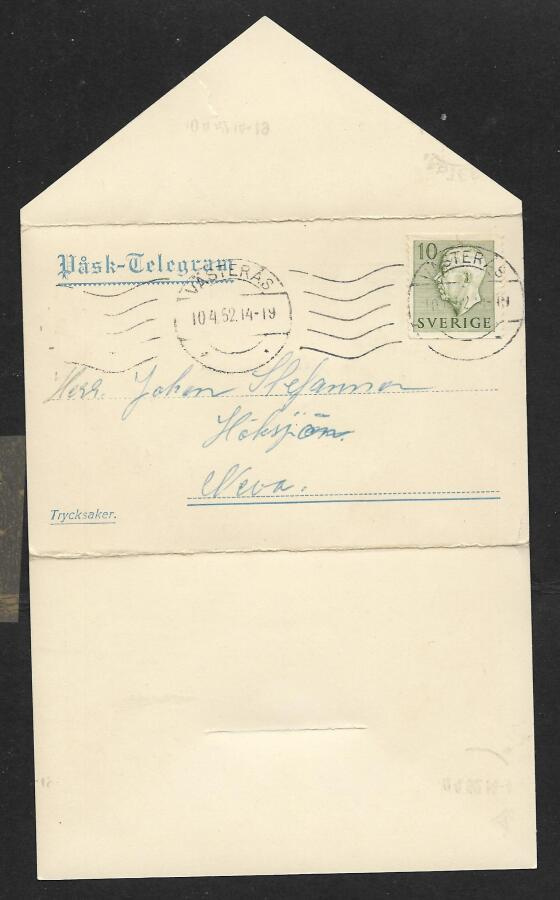 Påsk-Telegram
VÄSTERÅS
10.4.52.14-19
10
SVERIGE
VÄSTERÅS
Herr. Johan Stefansson
Höksjön.
Neva.
Trycksaker.